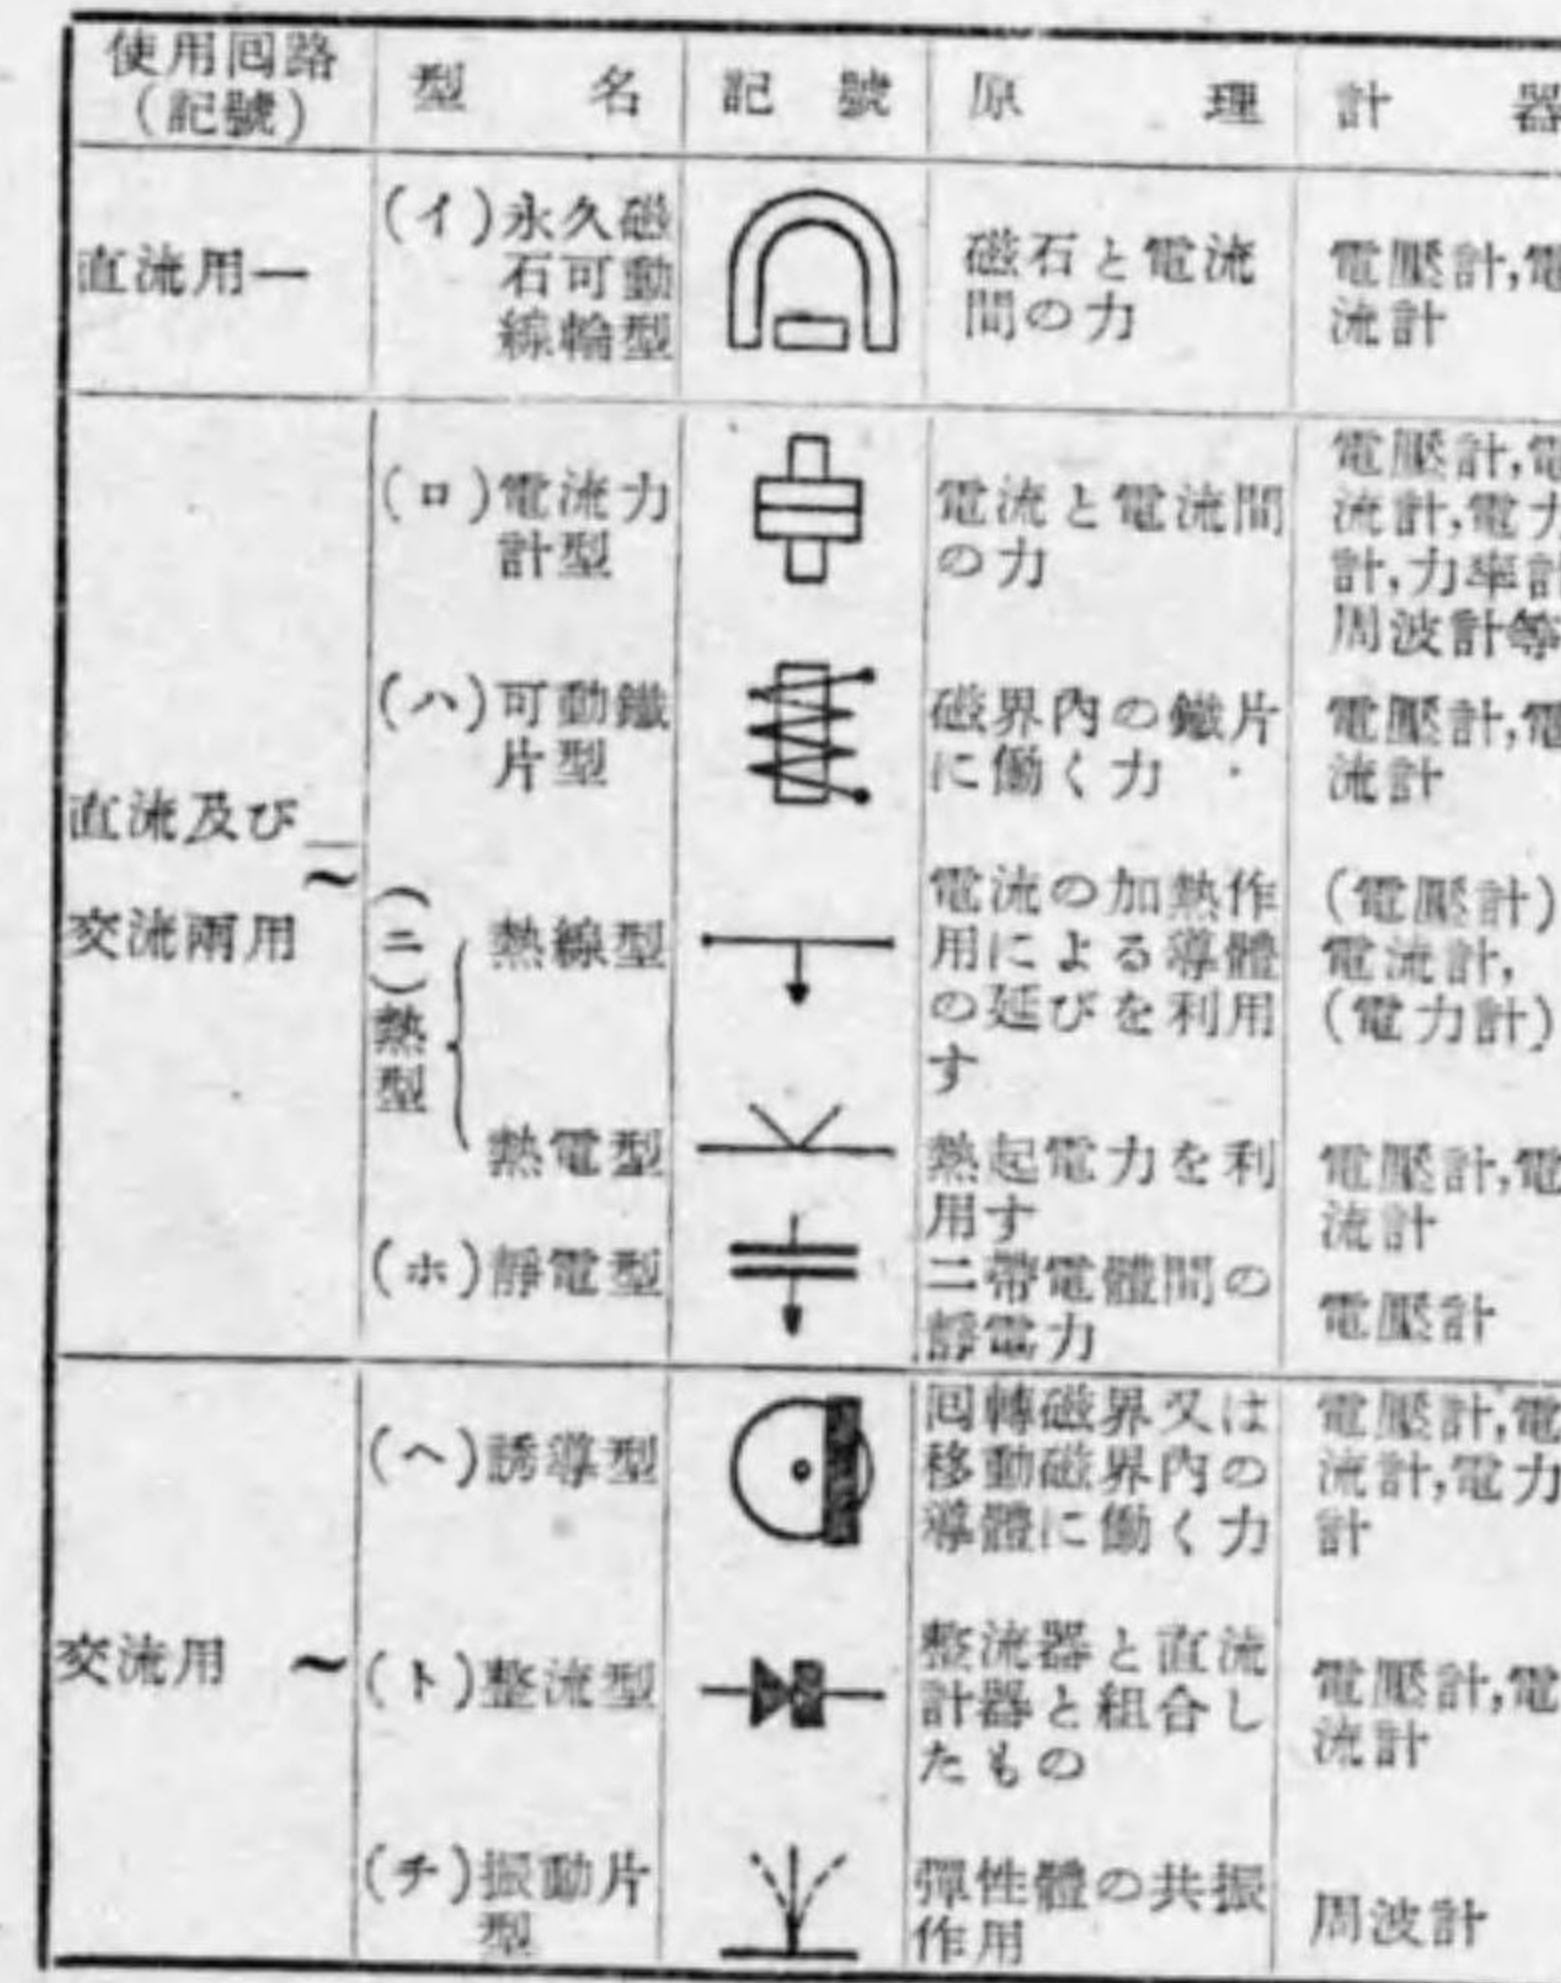 使用回路
(記號)
型名
記號
原理
計器
直流用—
(イ)永久磁
石可動
線輪型
磁石と電流
間の力
電壓計,電
流計
直流及び
交流兩用
—
~
(ロ)電流力
計型
電流と電流間
の力
電壓計,電
流計,電力
計,力率計
周波計等
(ハ)可動鐵
片型
磁界內の鐵片
に働く力
電壓計,電
流計
(ニ)熱型
熱線型
電流の加熱作
用による導體
の延びを利用
す
(電壓計)
電流計,
(電力計)
熱電型
熱起電力を利
用す
電壓計,電
流計
(ホ)靜電型
二帶電體間の
靜電力
電壓計
交流用 ~
(ヘ)誘導型
回轉磁界又は
移動磁界內の
導體に働く力
電壓計,電
流計,電力
計
(ト)整流型
整流器と直流
計器と組合し
たもの
電壓計,電
流計
(チ)振動片
型
彈性體の共振
作用
周波計